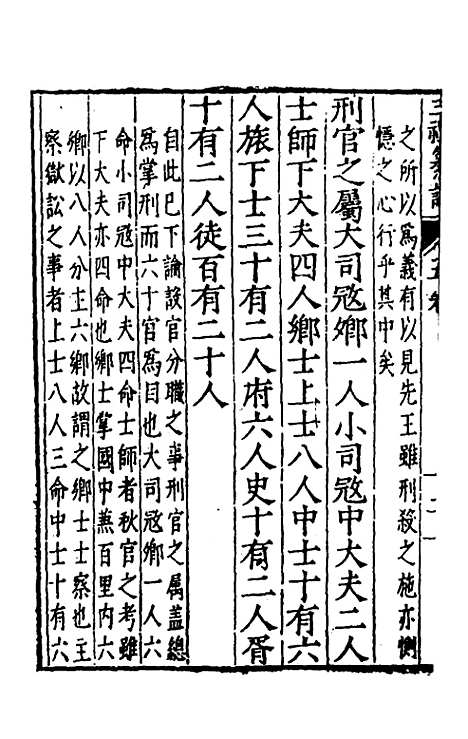 之所以為義有以見先王雖刑殺之施亦惻
憶之心行乎其中矣
刑官之屬大司寇卿一人小司寇中大夫二人
士師下大夫四人鄉士上士八人中士十有六
人旅下士三十有二人府六人史十有二人胥
十有二人徒百有二十人
自此已下論設官分職之事刑官之屬蓋總
為掌刑而六十官為目也大司寇卿一人六
命小司寇中大夫四命士師者秋官之考雖
下大夫亦四命也鄉士掌國中兼百里內六
鄉以八人分主六鄉故謂之鄉士士察也主
察獄訟之事者上士八人三命中士十有六